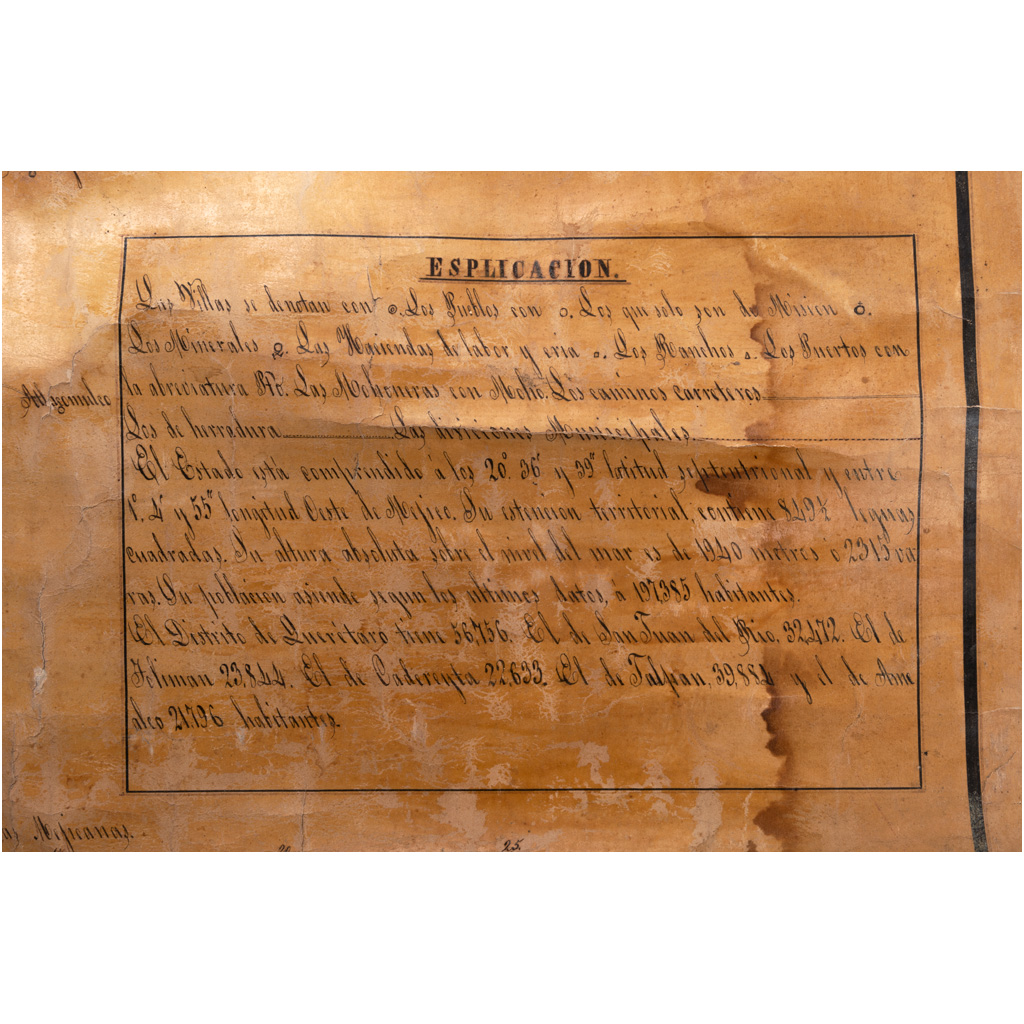 ESPLICACION.
Las Villas se denotan con o. Los Pueblos con o. Los que solo son de Mision o.
Los Minerales o. Las Haciendas de labor y cria o. Los Ranchos o. Los Puertos con
la abreviatura Pto. Las Mohoneras con Moho. Los caminos carreteros
Los de herradura Las diviciones Municipales
El Estado está comprendido á los 20° 36" y 39" latitud septentrional y entre
1°. 4' y 55" longitud Oeste de Mejico. Su estencion territorial, contiene 849½ leguas
cuadradas. Su altura absoluta sobre el nivel del mar es de 1940 metros ó 2315 va
ras. Su poblacion asiende segun los ultimos datos, á 197385 habitantes.
El Distrito de Querétaro tiene 56,756. El de San Juan del Rio. 32,472. El de
Toliman 23,844. El de Cadereyta 22,633. El de Jalpan, 39,884 y el de Ame
alco 21.796 habitantes.
Mejicanas.
25.